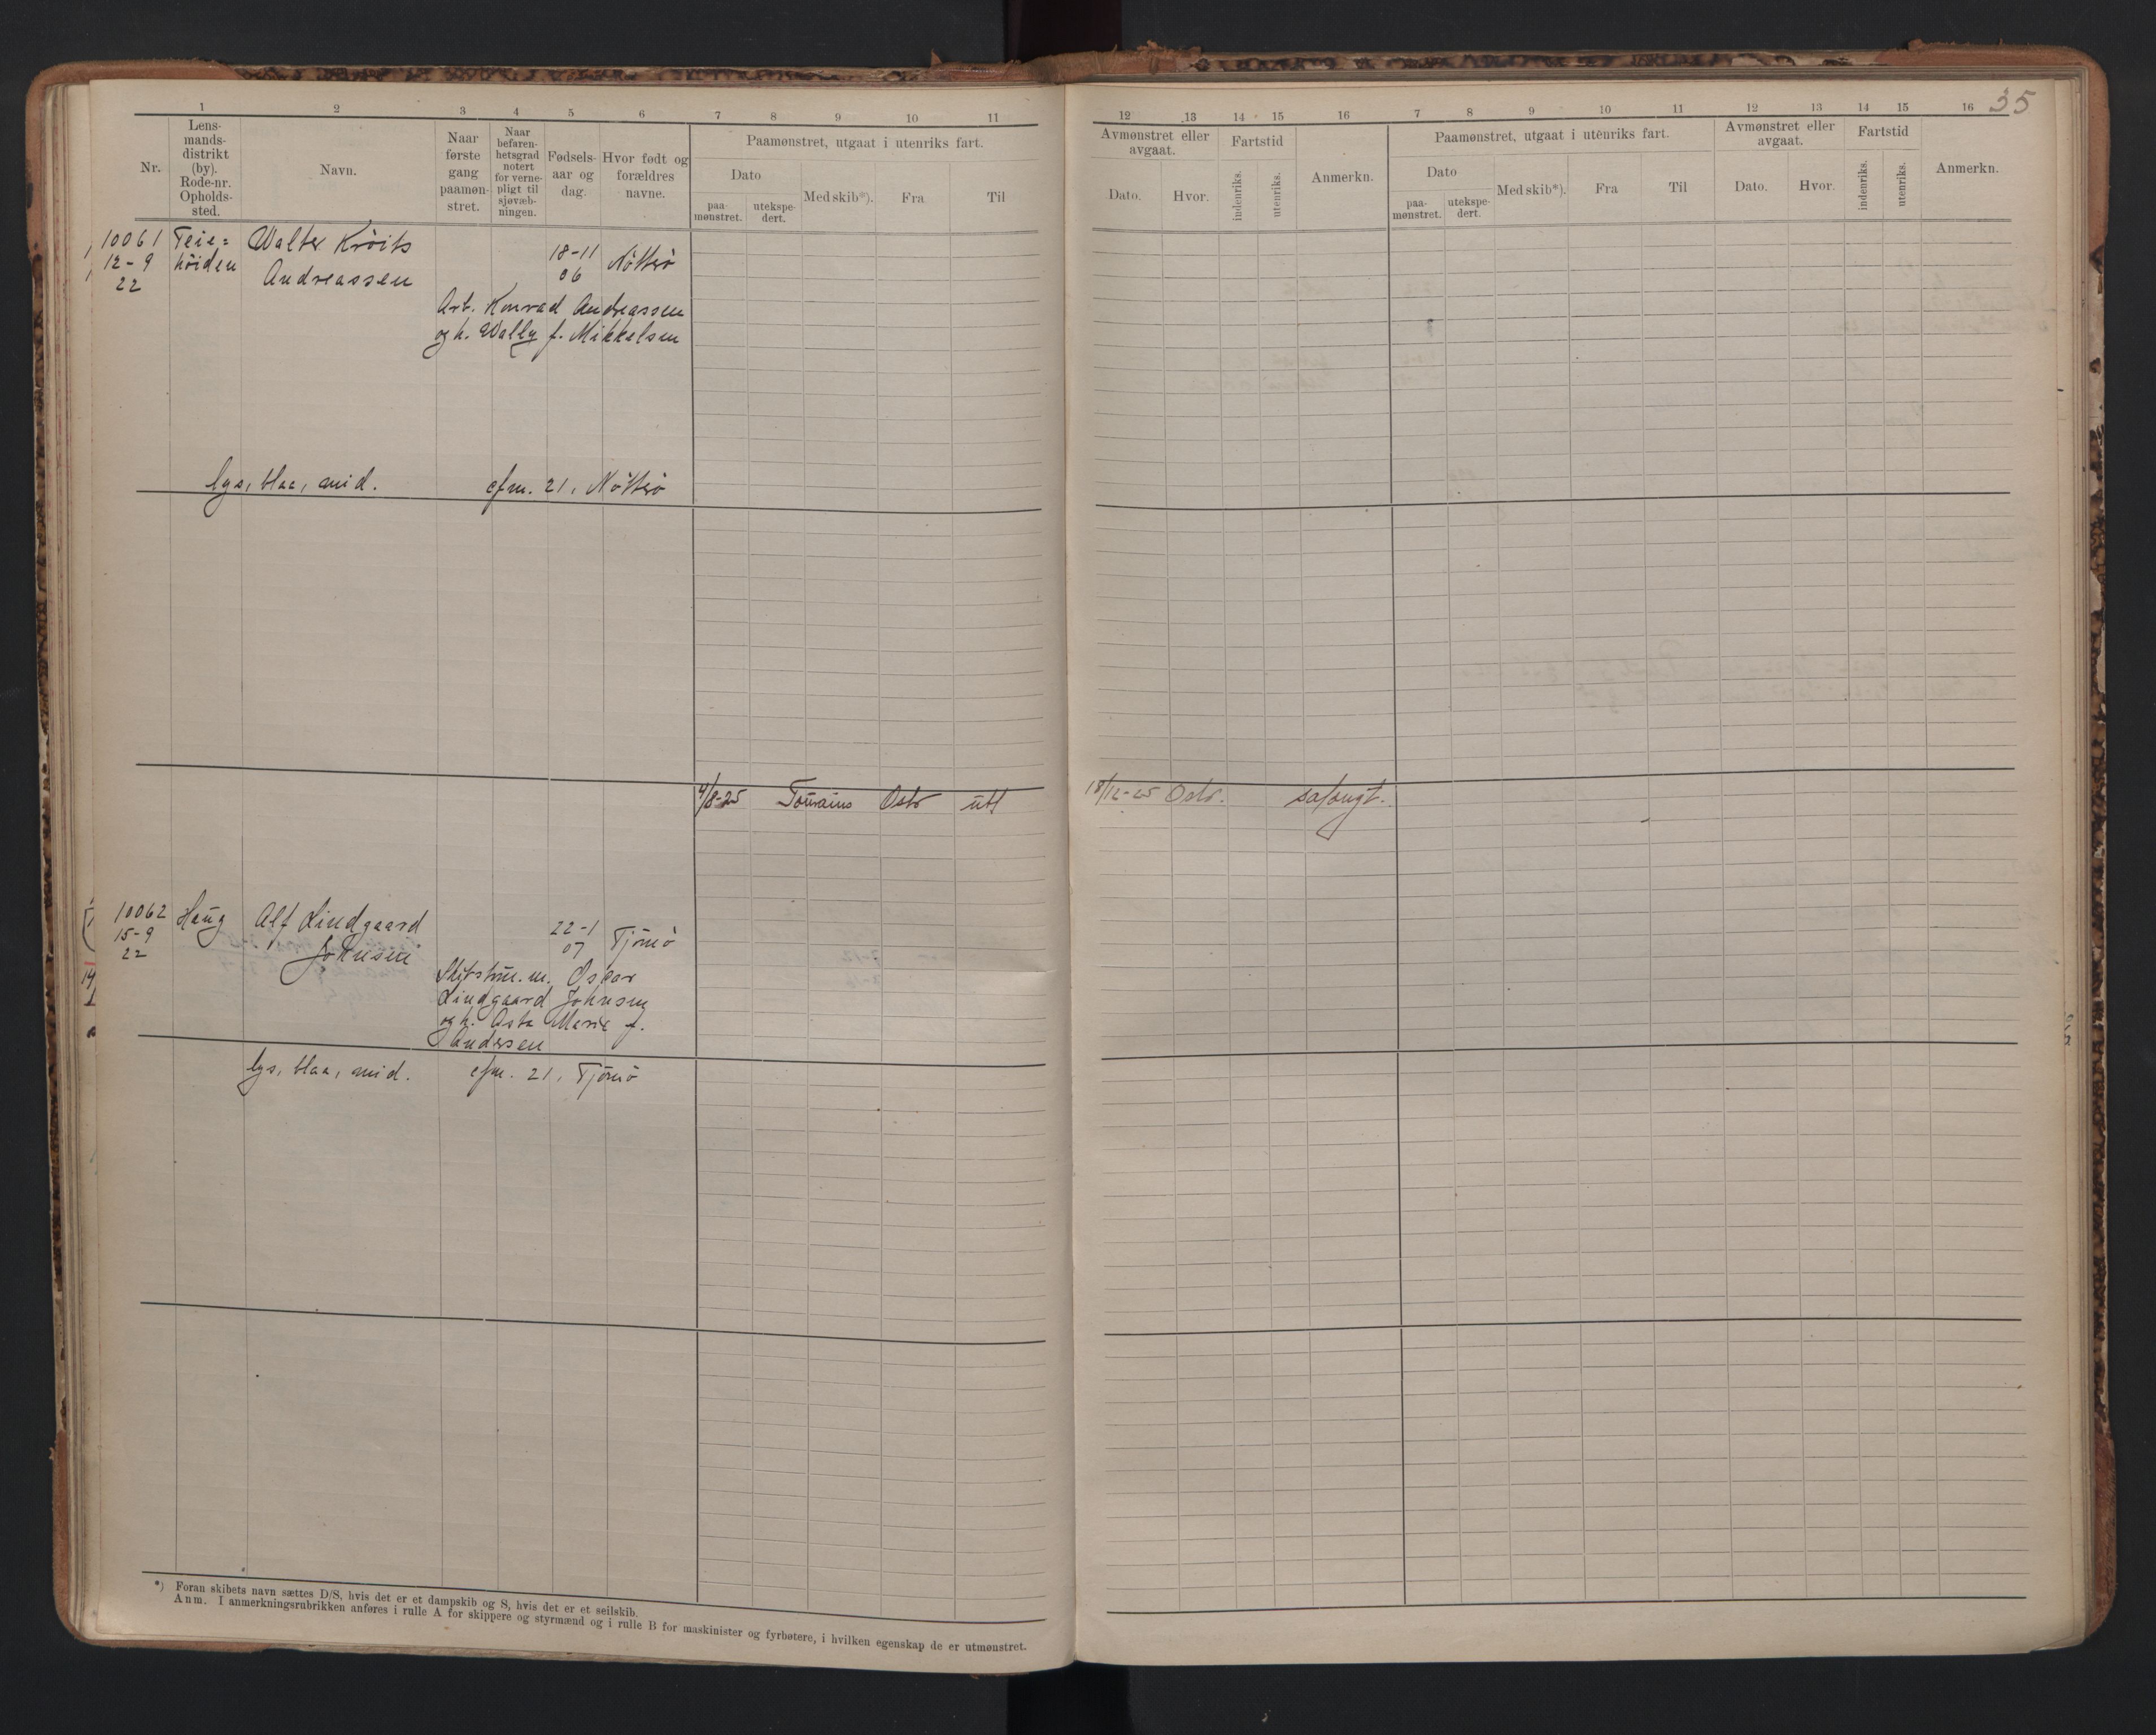 35
1 2 3 4 5 6 7 8 9 10 11
Nr.
Lens-
mands-
distrikt
(by).
Rode-nr.
Opholds-
sted.
Navn.
Naar
første
gang
paamøn-
stret.
Naar
befaren-
hetsgrad
notert
for verne-
pligt til
sjøvæb-
ningen.
Fødsels-
aar og
dag.
Hvor født og
forældres
navne.
Paamønstret, utgaat i utenriks fart.
Dato
paa-
mønstret.
utekspe-
dert.
Med skib*).
Fra
Til
12 13 14 15 16 7 8 9 10 11 12 13 14 15 16
Avmønstret eller
avgaat.
Dato.
Hvor.
Fartstid
indenriks.
utenriks.
Anmerkn.
Paamønstret, utgaat i utenriks fart.
Dato
paa-
mønstret.
utekspe-
dert.
Med skib*).
Fra
Til
Avmønstret eller
avgaat.
Dato.
Hvor.
Fartstid
indenriks.
utenriks.
Anmerkn.
10061 Teie= Walter Kröits
12-9 höiden Andreassen 18-11 Nötterö
22 06
Arb. Konrad Andreassen
og h. Wally f. Mikkelsen
lys, blaa, mid. cfm. 21, Nötterö
4/8-25 Oslo utl 18/12-25 Oslo.
10062 Haug Alf Lindgaard 22-1 Tjömö
15-9 Johnsen 07
22
Oscar
Lindgaard Johnsen
og h. Asta Marie f.
Andersen
lys, blaa, mid. cfm. 21, Tjömö
*) Foran skibets navn sættes D/S, hvis det er et dampskib og S, hvis det er et seilskib.
Anm. I anmerkningsrubrikken anføres i rulle A for skippere og styrmænd og i rulle B for maskinister og fyrbøtere, i hvilken egenskap de er utmønstret.